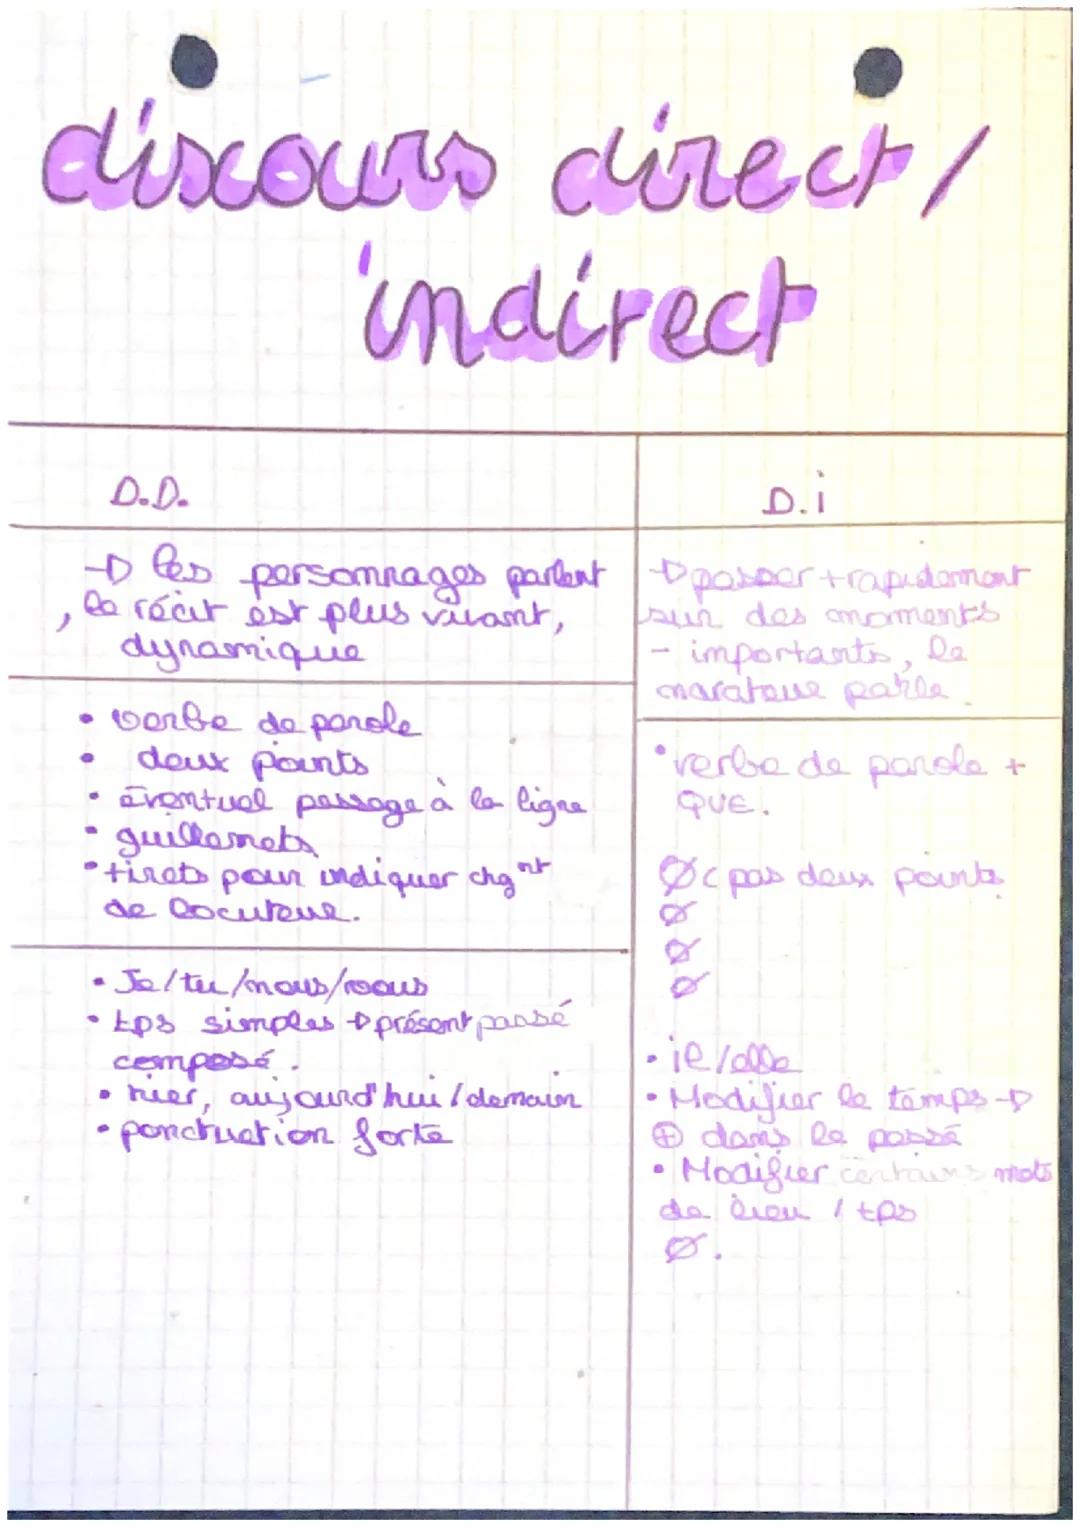 discours direct /
indirect
D.D.
→ les personnages parlent
, le récit est plus vivant,
dynamique
• verbe de parole
• deux points
• éventuel passage à la ligne
• guillemets
• tirets pour indiquer chgnt
de locuteur.
• Je/tu/nous/vous
• tps simples → présent passé
composé.
• hier, aujourd'hui / demain
• ponctuation forte
D.i
→ passer + rapidement
sur des moments
- importants, le
narateur parle.
• verbe de parole +
QUE.
Ø ( pas deux points
Ø
Ø
Ø
• il/elle
• Modifier le temps →
⊕ dans le passé
• Modifier certains mots
de lieu / tps
Ø.